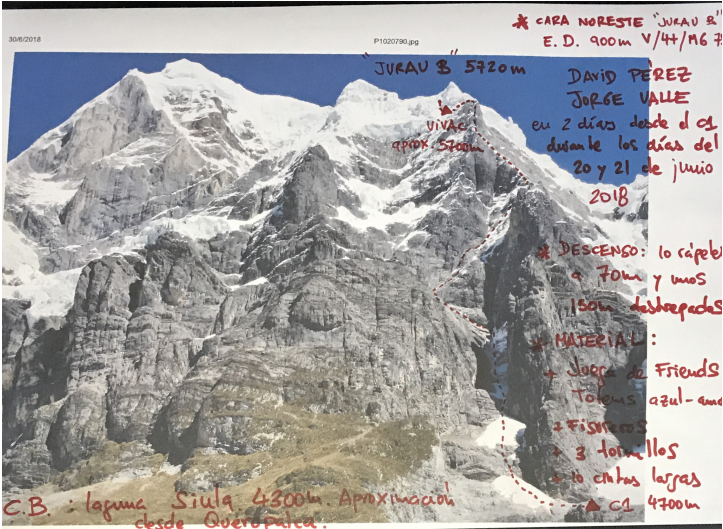 30/6/2018
P1020790.jpg
* CARA NORESTE "JURAU B"
E. D. 900m V/4+/M6
"JURAU B" 5720m
DAVID PEREZ
JORGE VALLE
en 2 días desde el C1
durante los días del
20 y 21 de junio
2018
VIVAC
aprox. 5700m
* DESCENSO: 10 rápeles
a 70m y unos
150m destrepados
* MATERIAL:
+ Juego de Friends
Totems azul-
+ Fisureros
+ 3 tornillos
+ 10 cintas largas
C1 4700m
C.B. : laguna Siula 4300m. Aproximación
desde Queropalca.